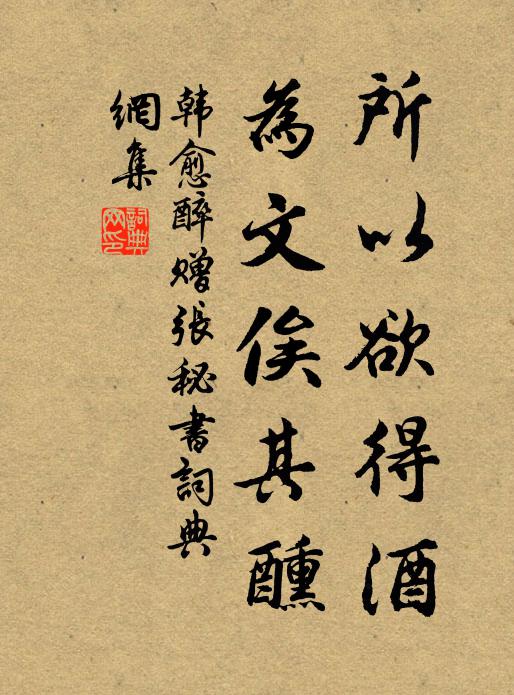 所以欲得酒
為文俟其醺
韩愈醉赠張秘書詞典
網集
詞典
网印